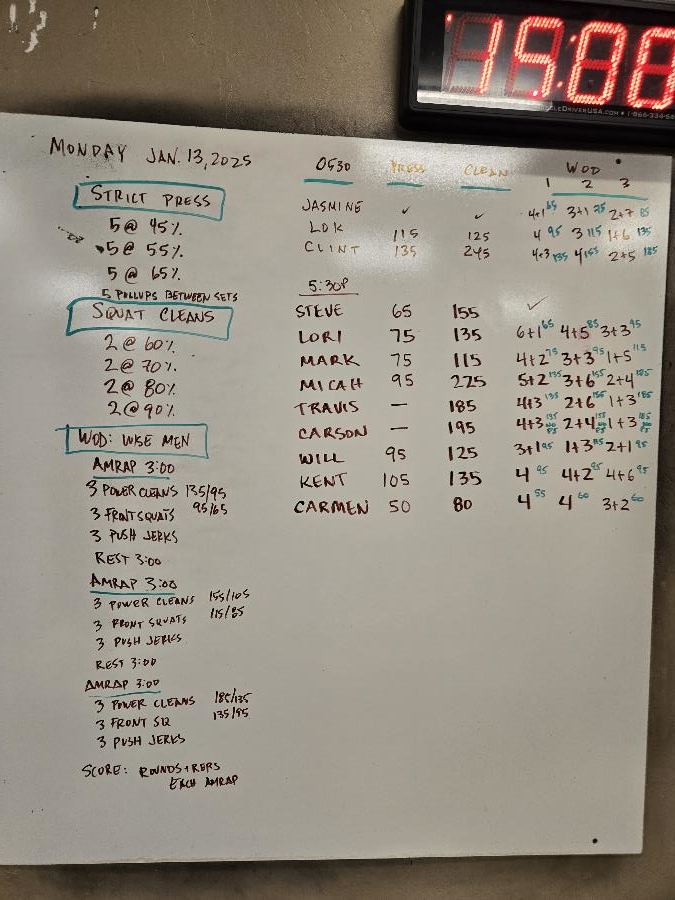 15:00
MONDAY JAN. 13, 2025
STRICT PRESS
5 @ 45%
5 @ 55%
5 @ 65%
5 PULLUPS BETWEEN SETS
SQUAT CLEANS
2 @ 60%
2 @ 70%
2 @ 80%
2 @ 90%
WOD: WISE MEN
AMRAP 3:00
3 POWER CLEANS 135/95
3 FRONT SQUATS 95/65
3 PUSH JERKS
REST 3:00
AMRAP 3:00
3 POWER CLEANS 155/105
3 FRONT SQUATS 115/85
3 PUSH JERKS
REST 3:00
AMRAP 3:00
3 POWER CLEANS 185/135
3 FRONT SQ 135/95
3 PUSH JERKS
SCORE: ROUNDS + REPS
EACH AMRAP
0530 PRESS CLEAN WOD
1 2 3
JASMINE ✓ ✓ 4+1 65 3+1 75 2+7 85
LOK 115 125 4 95 3 115 1+6 135
CLINT 135 245 4+3 135 4 155 2+5 185
5:30P
STEVE 65 155 ✓
LORI 75 135 6+1 65 4+5 85 3+3 95
MARK 75 115 4+2 75 3+3 95 1+5 115
MICAH 95 225 5+2 135 3+6 155 2+4 185
TRAVIS — 185 4+3 135 2+6 155 1+3 185
CARSON — 195 4+3 135 2+4 155 1+3 185
WILL 95 125 3+1 95 1+3 2+1 95
KENT 105 135 4 95 4+2 95 4+6 95
CARMEN 50 80 4 55 4 60 3+2 60